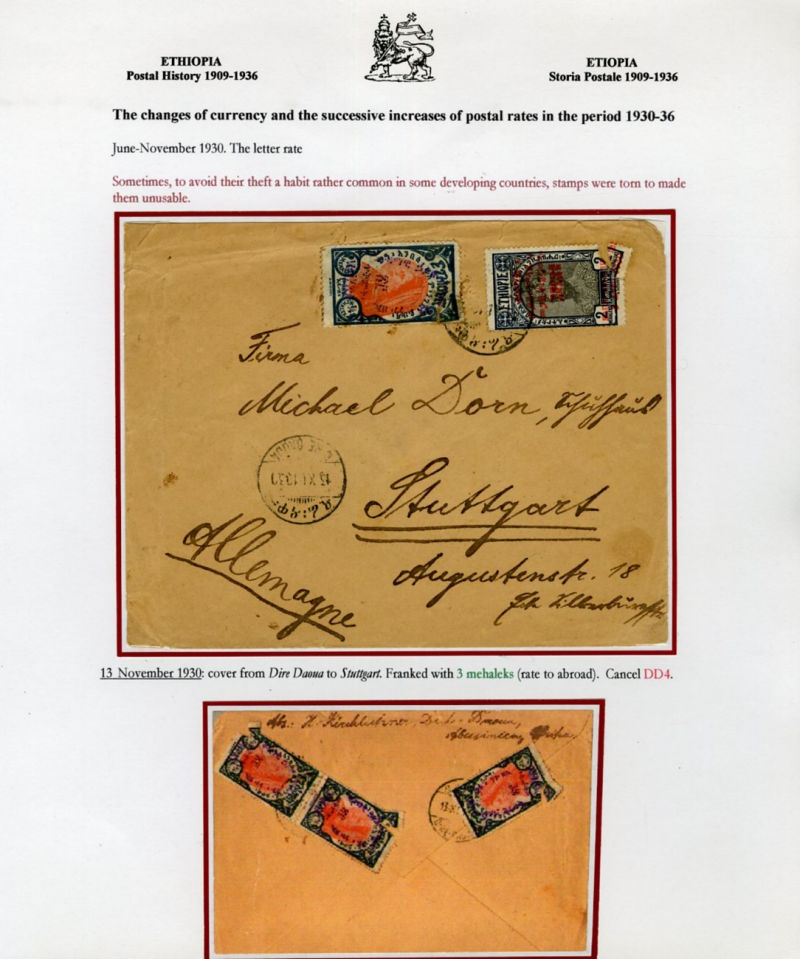 ETHIOPIA
Postal History 1909-1936
ETIOPIA
Storia Postale 1909-1936
The changes of currency and the successive increases of postal rates in the period 1930-36
June-November 1930. The letter rate
Sometimes, to avoid their theft a habit rather common in some developing countries, stamps were torn to made
them unusable.
ETHIOPIE
2
2
Firma
Michael Dorn,
13 XI 1930
Stuttgart
Allemagne
Augustenstr. 18
13 November 1930: cover from Dire Daoua to Stuttgart. Franked with 3 mehaleks (rate to abroad). Cancel DD4.
Abs.: H. Dire-Daoua,